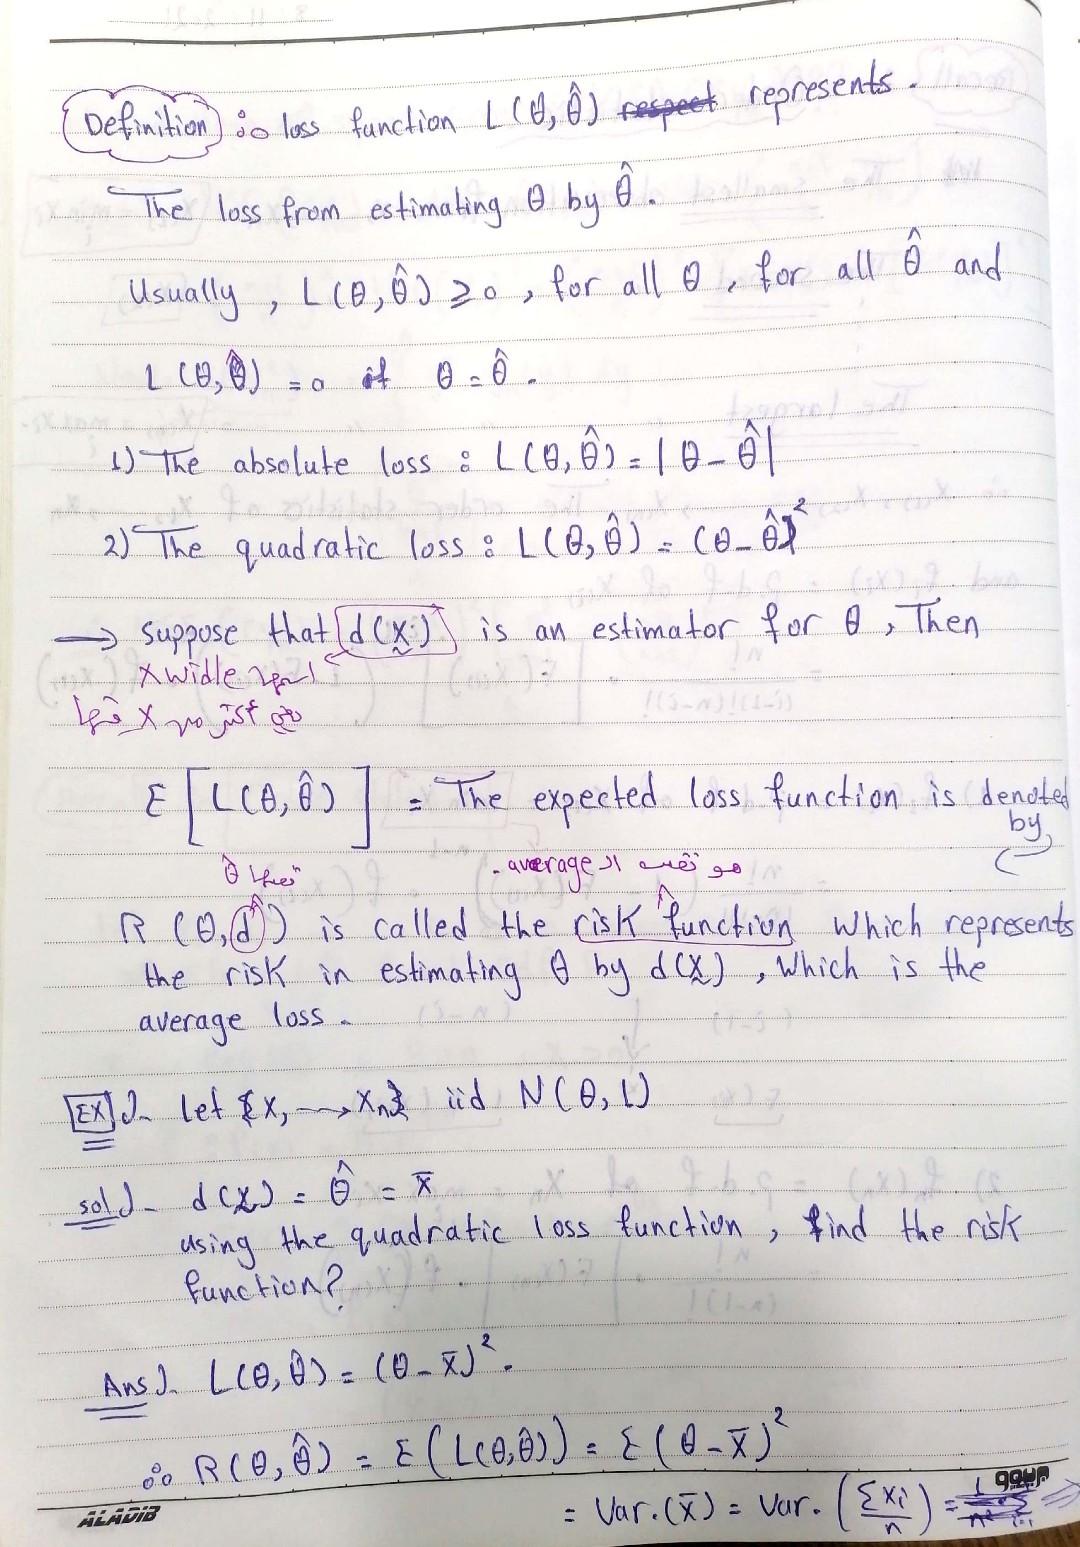 Definition : loss function L(θ, θ̂) respect represents.
The loss from estimating θ by θ̂.
Usually, L(θ, θ̂) ≥ 0, for all θ, for all θ̂ and
L(θ, θ̂) = 0 if θ = θ̂.
1) The absolute loss : L(θ, θ̂) = |θ - θ̂|
2) The quadratic loss : L(θ, θ̂) = (θ - θ̂)²
→ suppose that d(x) is an estimator for θ, Then
x widle اسمها
يعني أكثر من x فيها
E[L(θ, θ̂)] = The expected loss function is denoted
by
θ̂ نفسها
هو نفسه الـ average.
R(θ, d) is called the risk function which represents
the risk in estimating θ by d(x), which is the
average loss.
EX). Let {x, → xn} iid N(θ, 1)
sol). d(x) = θ̂ = x̄
using the quadratic loss function, find the risk
function?
Ans). L(θ, θ̂) = (θ - x̄)².
∴ R(θ, θ̂) = E(L(θ, θ̂)) = E(θ - x̄)²
= Var.(x̄) = Var.(Σxi/n) =
ALADIB